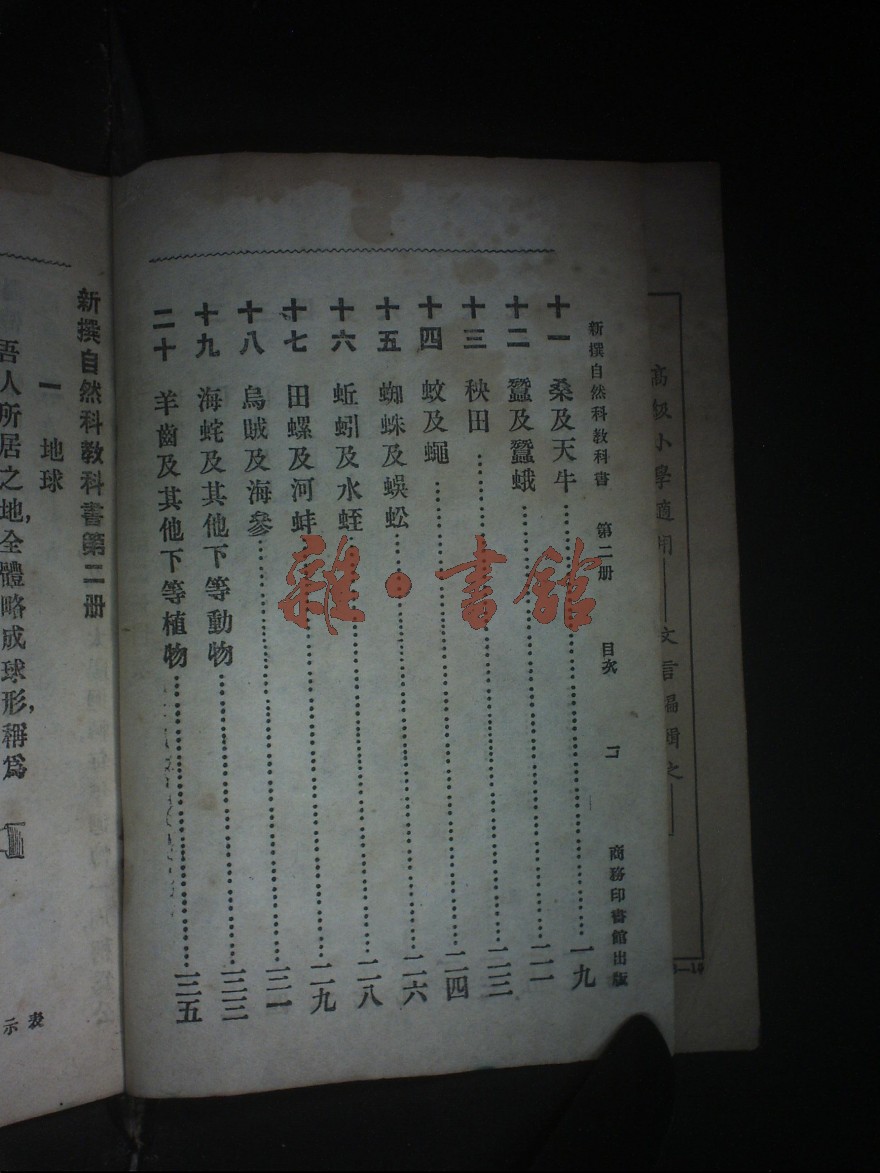 高級小學適用——文言編輯之——
新撰自然科教科書 第二册 目次 二 商務印書館出版
十一 桑及天牛……一九
十二 蠶及蠶蛾……二一
十三 秧田……二三
十四 蚊及蠅……二四
十五 蜘蛛及蜈蚣……二六
十六 蚯蚓及水蛭……二八
十七 田螺及河蚌……二九
十八 烏賊及海參……三一
十九 海蛇及其他下等動物……三三
二十 羊齒及其他下等植物……三五
新撰自然科教科書第二册
一 地球
吾人所居之地，全體略成球形，稱爲
表
示
雜·書館